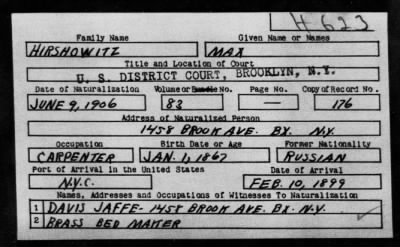 H-623
Family Name Given Name or Names
HIRSHOWITZ MAX
Title and Location of Court
U. S. DISTRICT COURT, BROOKLYN, N.Y.
Date of Naturalization Volume or Bundle No. Page No. Copy of Record No.
JUNE 9, 1906 83 — 176
Address of Naturalized Person
1458 BROOK AVE. BX. N.Y.
Occupation Birth Date or Age Former Nationality
CARPENTER JAN. 1, 1867 RUSSIAN
Port of Arrival in the United States Date of Arrival
N.Y.C. FEB. 10, 1899
Names, Addresses and Occupations of Witnesses To Naturalization
1 DAVIS JAFFE- 1458 BROOK AVE. BX. N.Y.
2 BRASS BED MAKER